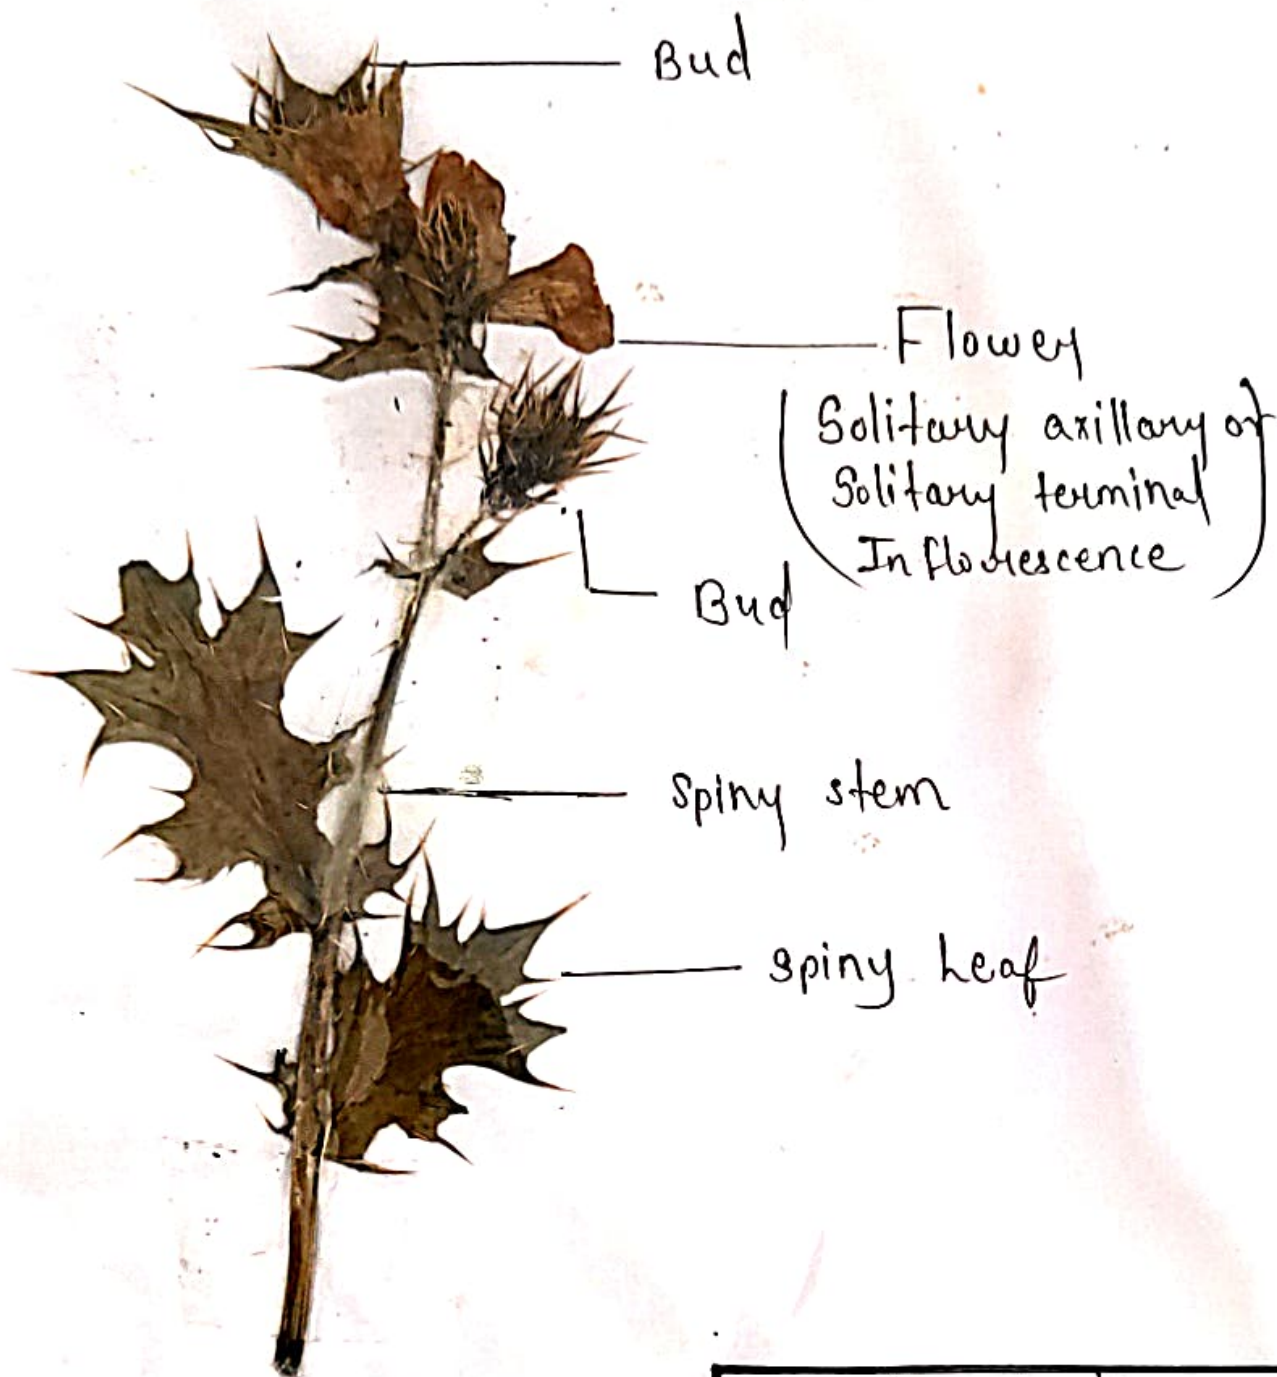 Bud
Flower
(Solitary axillary or
Solitary terminal
Inflorescence)
Bud
Spiny stem
Spiny Leaf